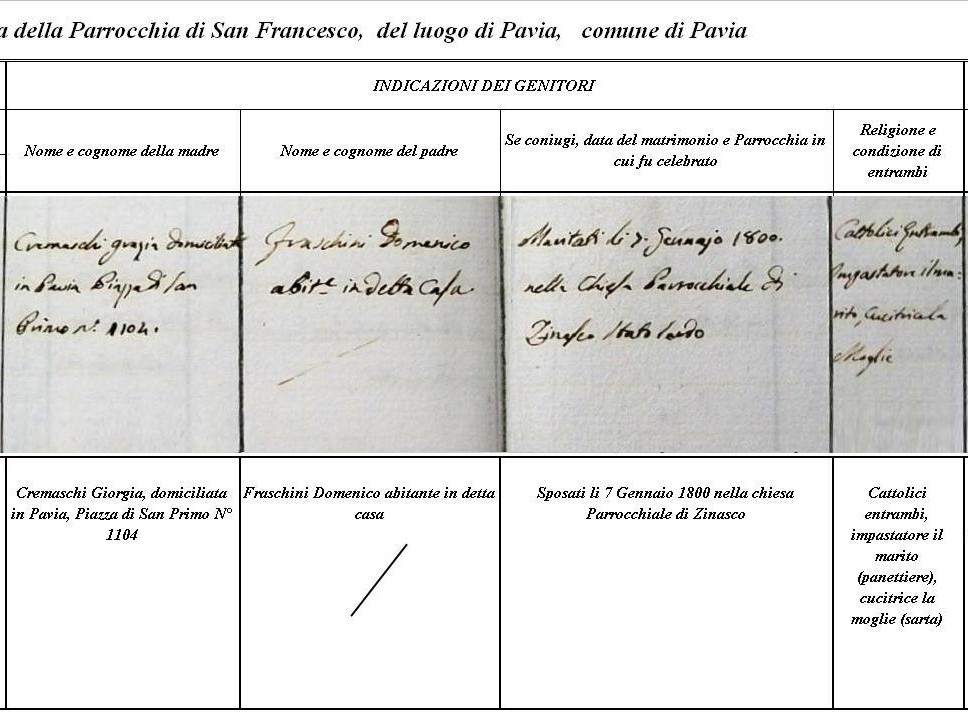 a della Parrocchia di San Francesco, del luogo di Pavia, comune di Pavia
INDICAZIONI DEI GENITORI
Nome e cognome della madre
Nome e cognome del padre
Se coniugi, data del matrimonio e Parrocchia in
cui fu celebrato
Religione e
condizione di
entrambi
Cremaschi domiciliata
in Pavia Piazza di San
Primo n.º 1104.
Fraschini Domenico
abit.e in detta Casa.
Maritati li 7. Gennajo 1800.
nella Chiesa Parrocchiale di
Zinasco Stato Sardo
Cattolici Entrambi,
Impastatore il ma=
rito, Cucitrice la
Moglie
Cremaschi Giorgia, domiciliata
in Pavia, Piazza di San Primo N°
1104
Fraschini Domenico abitante in detta
casa
Sposati li 7 Gennaio 1800 nella chiesa
Parrocchiale di Zinasco
Cattolici
entrambi,
impastatore il
marito
(panettiere),
cucitrice la
moglie (sarta)